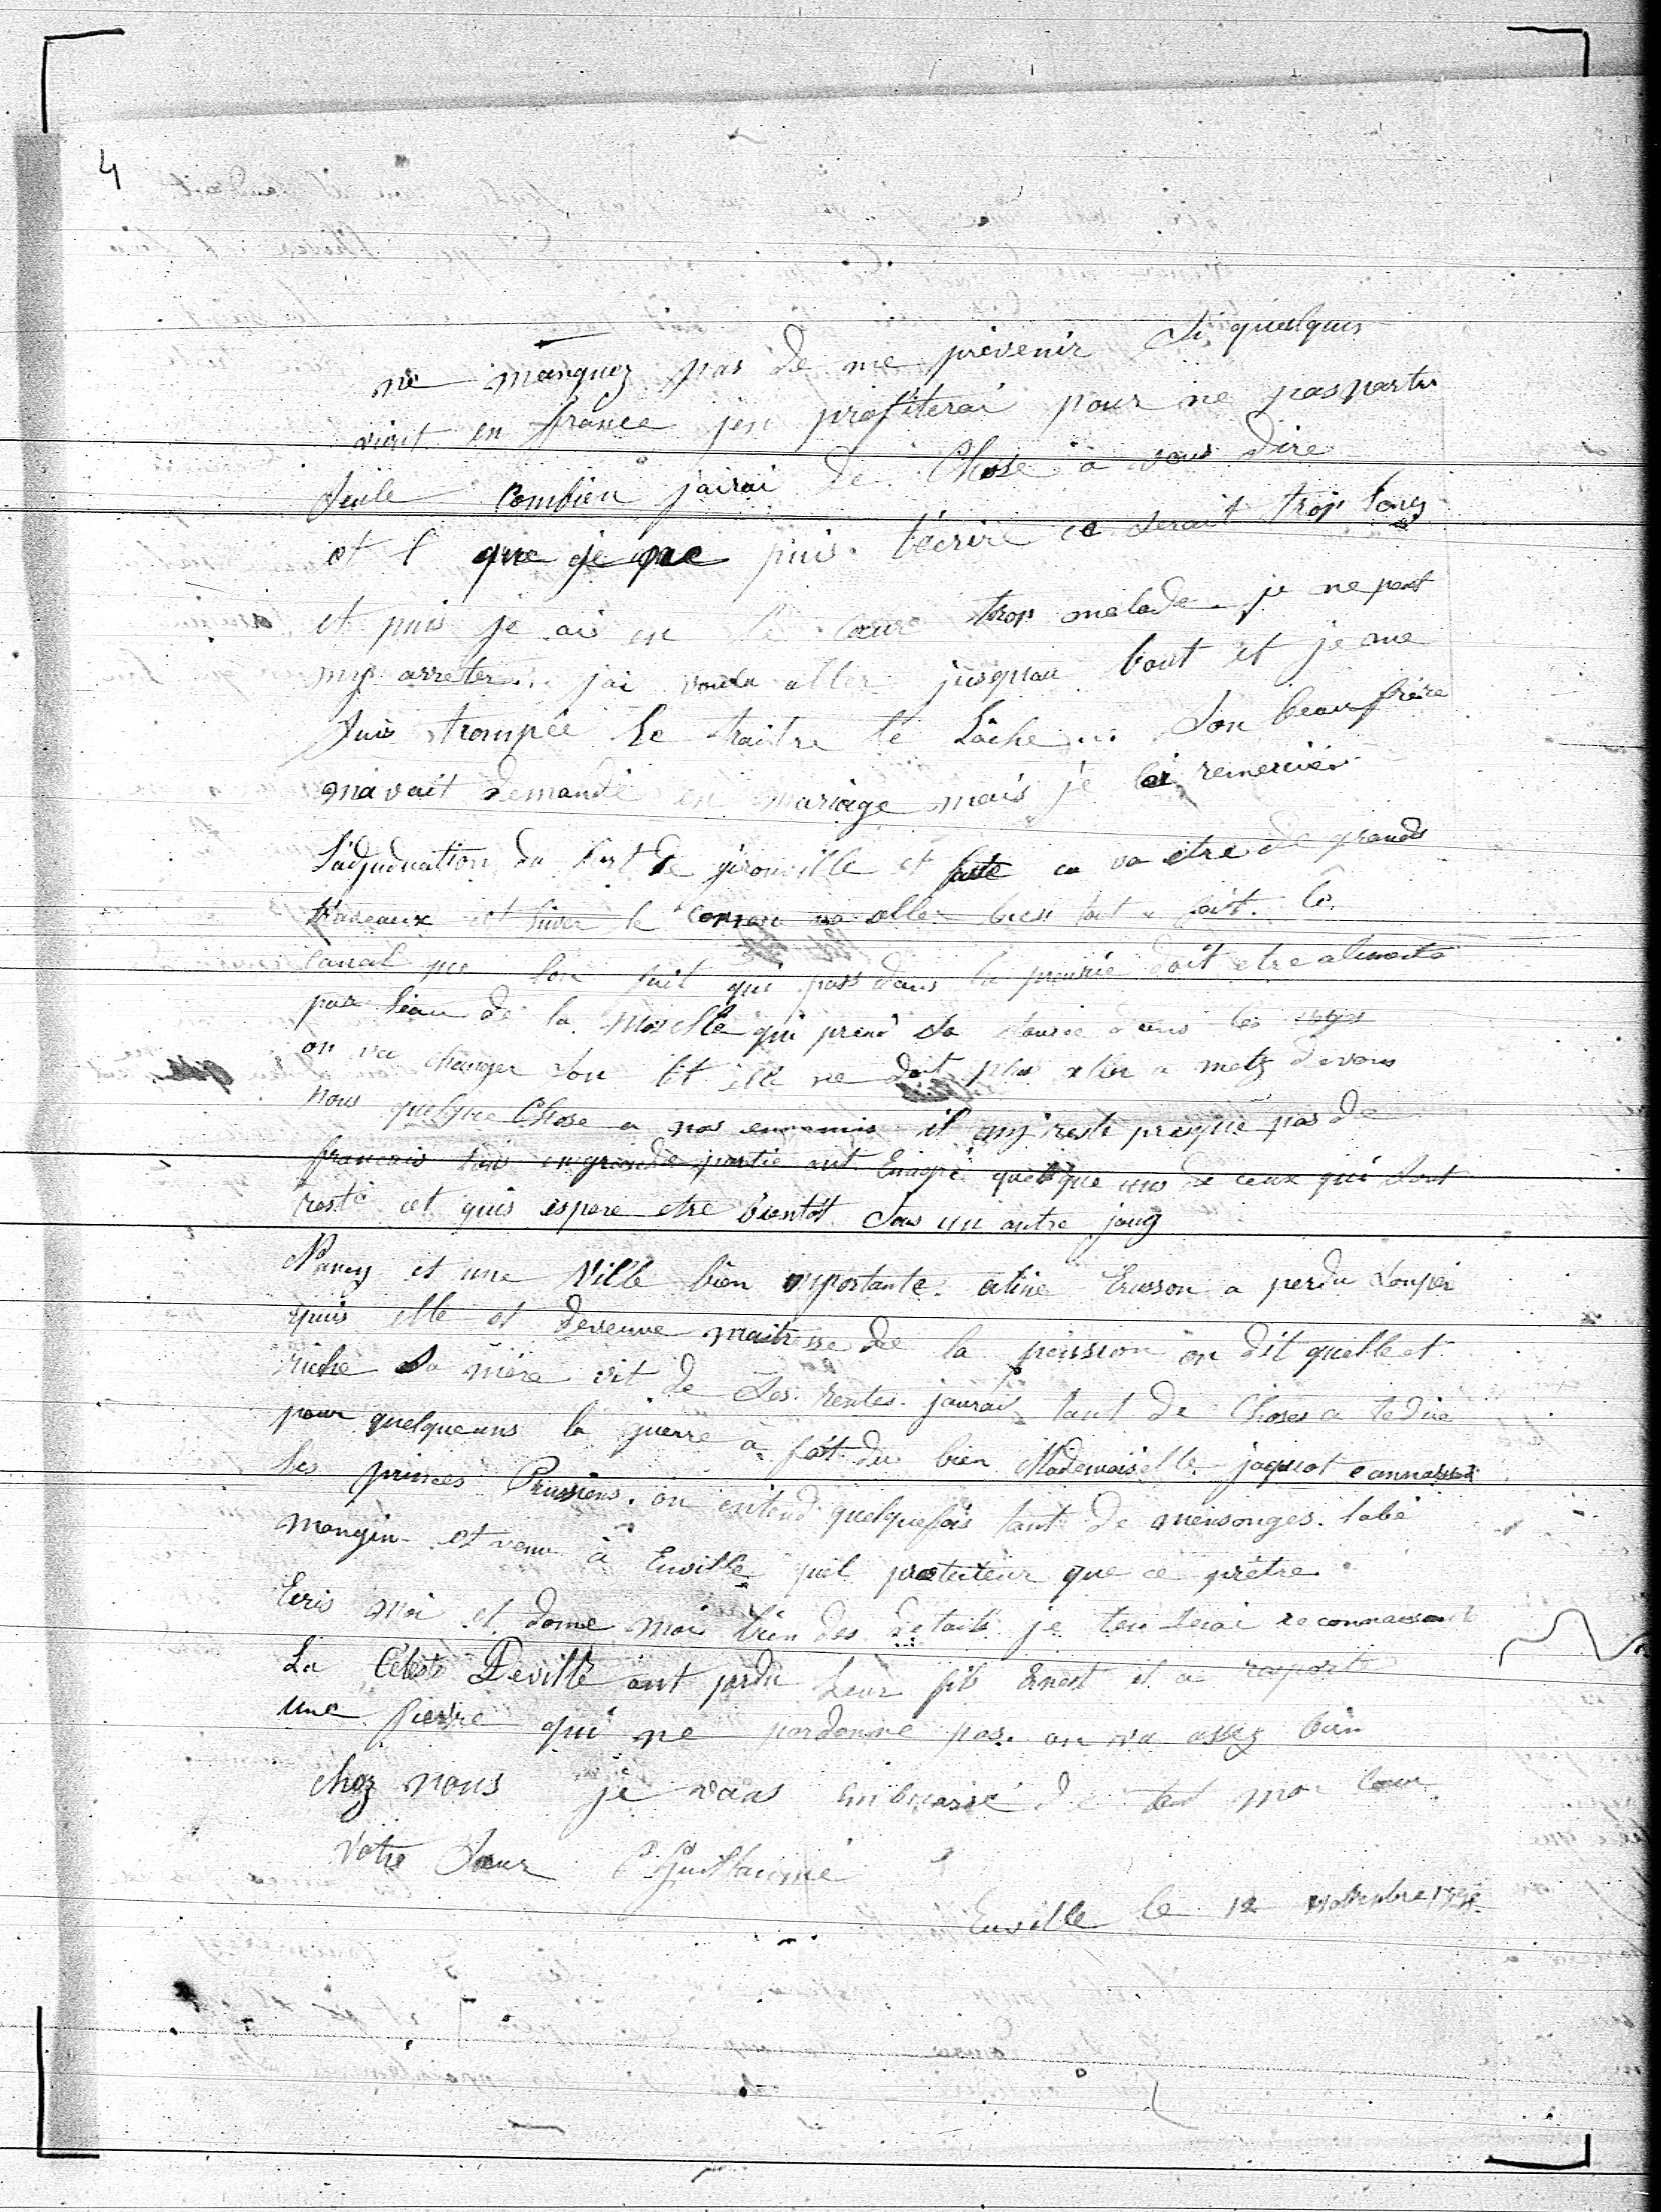 4
ne manquez pas de me prevenir Si quelquns
vient en france jen profiterai pour ne pas partir
Seule Combien jairai de Chose à vous dire
et que je puis t'écrire ce serait trop long
et puis je ais eu le cœur trop malade je ne peut
my arreter. jai voulu aller jusquau bout et je me
Suis trompée Le traitre le Lâche ... Son beau frère
mavait demandé en mariage mais je remerciér
Ladjudication du fort de gironville et faite ca va etre de grands
traveaux et hiver le va aller bien tout a fait. le
canal que lon fait qui pass dans la prairie doit etre alimenté
par leau de la Moselle qui prend sa Source dans les
on va changer son lit elle ne doit plus aller a metz devons
nous quelque Chose a nos ennemis il my reste presque pas de
francais tous en grande partie ont Emigré quelque uns de ceux qui Sont
resté et quis espere etre bientôt Sous un autre joug
Nancy et une Ville bien importante. Erisson a perdu Son
puis elle et devenue maitresse de la pension on dit quelle et
riche Sa mère vit de Ses rentes. jaurai tant de Choses a te dire
pour quelqueuns la guerre a fait du bien Mademoiselle jaquot
les princes Prussiens. on entend quelquefois tant de mensonges. labé
mangin et venu à Euville quel que ce prêtre
Ecris moi et donne moi bien des details je ten serai reconnaissant
La Céleste Deville ont perdu Leur fils Ernest il a raporté
une fievre qui ne pardonne pas. on va assez bien
chez nous je vous embrasse de tout mon cœur
Votre Sœur C Guillaume
Euville le 12 novembre